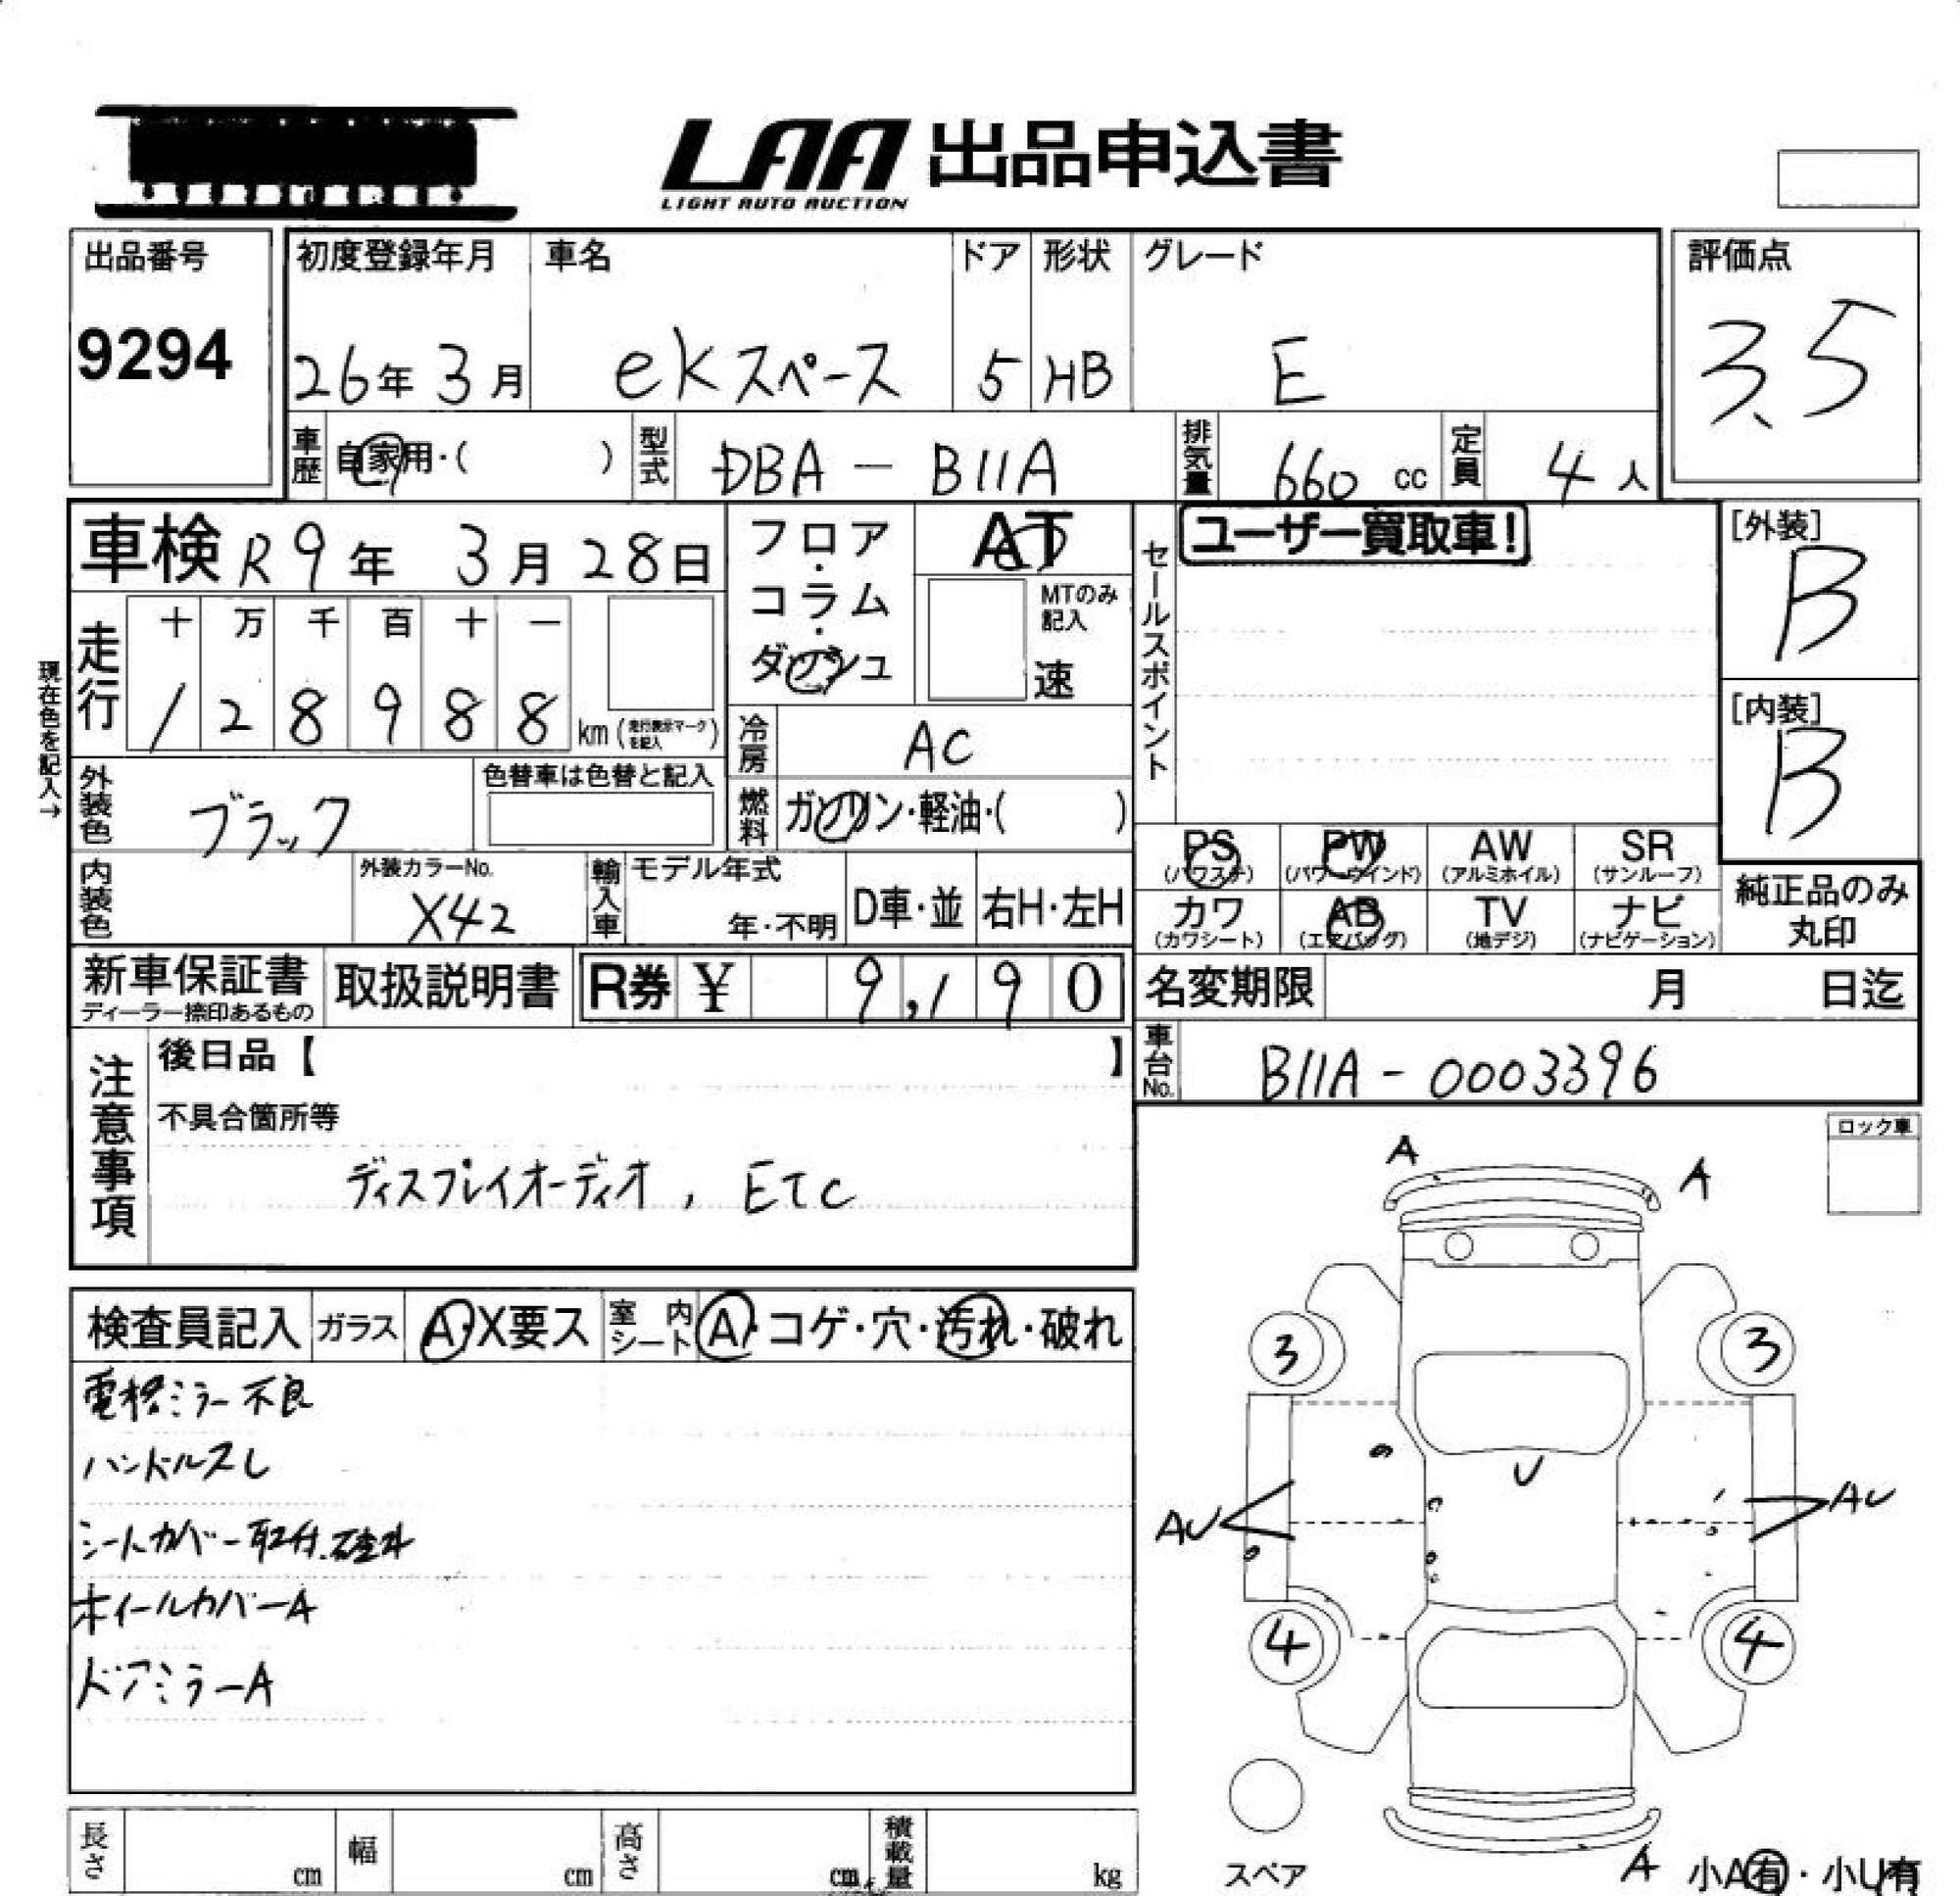 LAA 出品申込書
LIGHT AUTO AUCTION
出品番号
9294
初度登録年月
26年 3月
車名
ekスペース
ドア
5
形状
HB
グレード
E
評価点
3.5
車歴 自家用・( )
型式 DBA - B11A
排気量 660 cc
定員 4人
車検 R9年 3月28日
フロア・コラム・ダッシュ
AT
MTのみ記入
速
セールスポイント
ユーザー買取車!
[外装]
B
[内装]
B
現在色を記入→
走行
十 万 千 百 十 一
1 2 8 9 8 8 km (走行表示マークを記入)
冷房 AC
燃料 ガソリン・軽油・( )
外装色 ブラック
色替車は色替と記入
内装色
外装カラーNo.
X42
輸入車 モデル年式
年・不明
D車・並
右H・左H
PS (パワステ)
PW (パワーウインド)
AW (アルミホイル)
SR (サンルーフ)
カワ (カワシート)
AB (エアバッグ)
TV (地デジ)
ナビ (ナビゲーション)
純正品のみ
丸印
新車保証書
ディーラー捺印あるもの
取扱説明書
R券 ¥ 9,190
名変期限 月 日迄
車台No. B11A-0003396
注意事項
後日品【 】
不具合箇所等
ディスプレイオーディオ, ETC
ロック車
検査員記入
ガラス A・X要ス
室内シート A・コゲ・穴・汚れ・破れ
電格ミラー不良
ハンドルスレ
シートカバー取付.
ホイールカバーA
ドアミラーA
A
A
3
3
U
AU
AU
4
4
スペア
A
小A有・小U有
長さ cm
幅 cm
高さ cm
積載量 kg